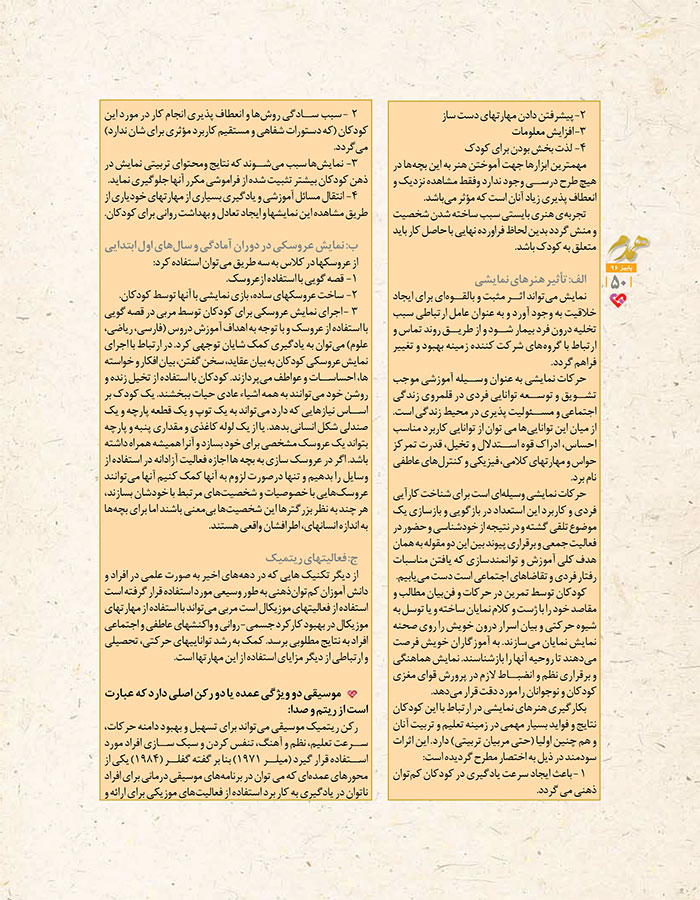 ۲- پیشرفتن دادن مهارتهای دست ساز
۳-افزایش معلومات
۴- لذت بخش بودن برای کودک
مهمترین ابزارها جهت آموختن هنر به این بچه‌ها در
هیچ طرح درسی وجود ندارد و فقط مشاهده نزدیک و
انعطاف پذیری زیاد آنان است که مؤثر می‌باشد.
تجربه‌ی هنری بایستی سبب ساخته شدن شخصیت
و منش گردد بدین لحاظ فراورده نهایی یا حاصل کار باید
متعلق به کودک باشد.
الف: تأثیر هنرهای نمایشی
نمایش می‌تواند اثر مثبت و بالقوه‌ای برای ایجاد
خلاقیت به وجود آورد و به عنوان عامل ارتباطی سبب
تخلیه درون فرد بیمار شود و از طریق روند تماس و
ارتباط با گروه‌های شرکت کننده زمینه بهبود و تغییر
فراهم گردد.
حرکات نمایشی به عنوان وسیله آموزشی موجب
تشویق و توسعه توانایی فردی در قلمروی زندگی
اجتماعی و مسئولیت پذیری در محیط زندگی است.
از میان این توانایی‌ها می توان از توانایی کاربرد مناسب
احساس، ادراک قوه استدلال و تخیل، قدرت تمرکز
حواس و مهارتهای کلامی، فیزیکی و کنترل‌های عاطفی
نام برد.
حرکات نمایشی وسیله‌ای است برای شناخت کارآیی
فردی و کاربرد این استعداد در بازگویی و بازسازی یک
موضوع تلقی گشته و در نتیجه از خودشناسی و حضور در
فعالیت جمعی و برقراری پیوند بین این دو مقوله به همان
هدف کلی آموزش و توانمندسازی که یافتن مناسبات
رفتار فردی و تقاضاهای اجتماعی است دست می‌یابیم.
کودکان توسط تمرین در حرکات و فن‌بیان مطالب و
مقاصد خود را با ژست و کلام نمایان ساخته و یا توسل به
شیوه حرکتی و بیان اسرار درون خویش را روی صحنه
نمایش نمایان می‌سازند. به آموزگاران خویش فرصت
می‌دهند تا روحیه آنها را بازشناسند. نمایش هماهنگی
و برقراری نظم و انضباط لازم در پرورش قوای مغزی
کودکان و نوجوانان را مورد دقت قرار می‌دهد.
بکارگیری هنرهای نمایشی در ارتباط با این کودکان
نتایج و فواید بسیار مهمی در زمینه تعلیم و تربیت آنان
و هم چنین اولیا (حتی مربیان تربیتی) دارد. این اثرات
سودمند در ذیل به اختصار مطرح گردیده است:
۱- باعث ایجاد سرعت یادگیری در کودکان کم‌توان
ذهنی می گردد.
۲- سبب سادگی روش‌ها و انعطاف پذیری انجام کار در مورد این
کودکان (که دستورات شفاهی و مستقیم کاربرد مؤثری برای شان ندارد)
می‌گردد.
۳- نمایش‌ها سبب می‌شوند که نتایج ومحتوای تربیتی نمایش در
ذهن کودکان بیشتر تثبیت شده از فراموشی مکرر آنها جلوگیری نماید.
۴- انتقال مسائل آموزشی و یادگیری بسیاری از مهارتهای خودیاری از
طریق مشاهده این نمایشها و ایجاد تعادل و بهداشت روانی برای کودکان.
ب: نمایش عروسکی در دوران آمادگی و سال‌های اول ابتدایی
از عروسکهادر کلاس به سه طریق می‌توان استفاده کرد:
۱- قصه گویی با استفاده ازعروسک.
۲- ساخت عروسکهای ساده، بازی نمایشی با آنها توسط کودکان.
۳- اجرای نمایش عروسکی برای کودکان توسط مربی در قصه گویی
با استفاده از عروسک و با توجه به اهداف آموزش دروس (فارسی، ریاضی،
علوم) می‌توان به یادگیری کمک شایان توجهی کرد. در ارتباط با اجرای
نمایش عروسکی کودکان به بیان عقاید، سخن گفتن، بیان افکار و خواسته
ها، احساسات و عواطف می‌پردازند. کودکان با استفاده از تخیل زنده و
روشن خود می‌توانند به همه اشیاء عادی حیات ببخشند. یک کودک بر
اساس نیازهایی که دارد می‌تواند به یک توپ و یک قطعه پارچه و یک
صندلی شکل انسانی بدهد. یا از یک لوله کاغذی و مقداری پنبه و پارچه
بتواند یک عروسک مشخصی برای خود بسازد و آنرا همیشه همراه داشته
باشد. اگر در عروسک سازی به بچه ها اجازه فعالیت آزادانه در استفاده از
وسایل را بدهیم و تنها درصورت لزوم به آنها کمک کنیم آنها می‌توانند
عروسک‌هایی با خصوصیات و شخصیت‌های مرتبط با خودشان بسازند،
هر چند به نظر بزرگترها این شخصیت‌ها بی‌معنی باشند اما برای بچه‌ها
به اندازه انسانهای، اطرافشان واقعی هستند.
ج: فعالیتهای ریتمیک
از دیگر تکنیک هایی که در دهه‌های اخیر به صورت علمی در افراد و
دانش آموزان کم‌توان‌ذهنی به طور وسیعی مورد استفاده قرار گرفته است
استفاده از فعالیتهای موزیکال است مربی می‌تواند با استفاده از مهارتهای
موزیکال در بهبود کارکرد جسمی-روانی و واکنشهای عاطفی و اجتماعی
افراد به نتایج مطلوبی برسد. کمک به رشد تواناییهای حرکتی، تحصیلی
و ارتباطی از دیگر مزایای استفاده از این مهارتها است.
موسیقی دو ویژگی عمده یا دو رکن اصلی دارد که عبارت
است از ریتم و صدا:
رکن ریتمیک موسیقی می‌تواند برای تسهیل و بهبود دامنه حرکات،
سرعت تعلیم، نظم و آهنگ، تنفس کردن و سبک سازی افراد مورد
استفاده قرار گیرد (میلر ۱۹۷۱) بنا بر گفته گفلر (۱۹۸۴) یکی از
محورهای عمده‌ای که می توان در برنامه‌های موسیقی درمانی برای افراد
ناتوان در یادگیری به کار برد استفاده از فعالیت‌های موزیکی برای ارائه و
همدم
پاییز ۹۶
۵۰